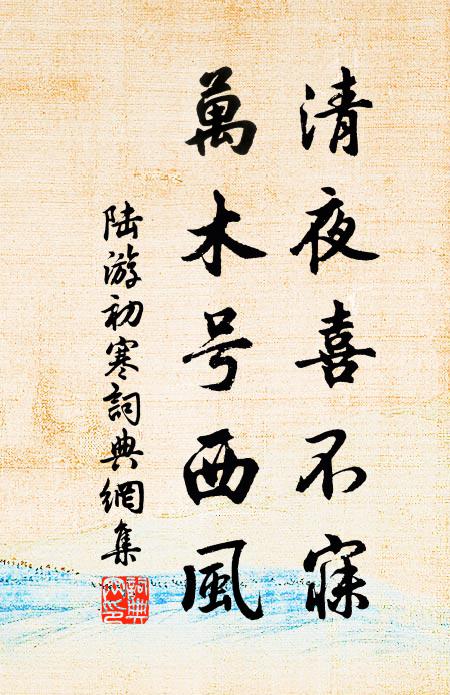 清夜喜不寐
萬木号西風
陆游初寒詞典網集